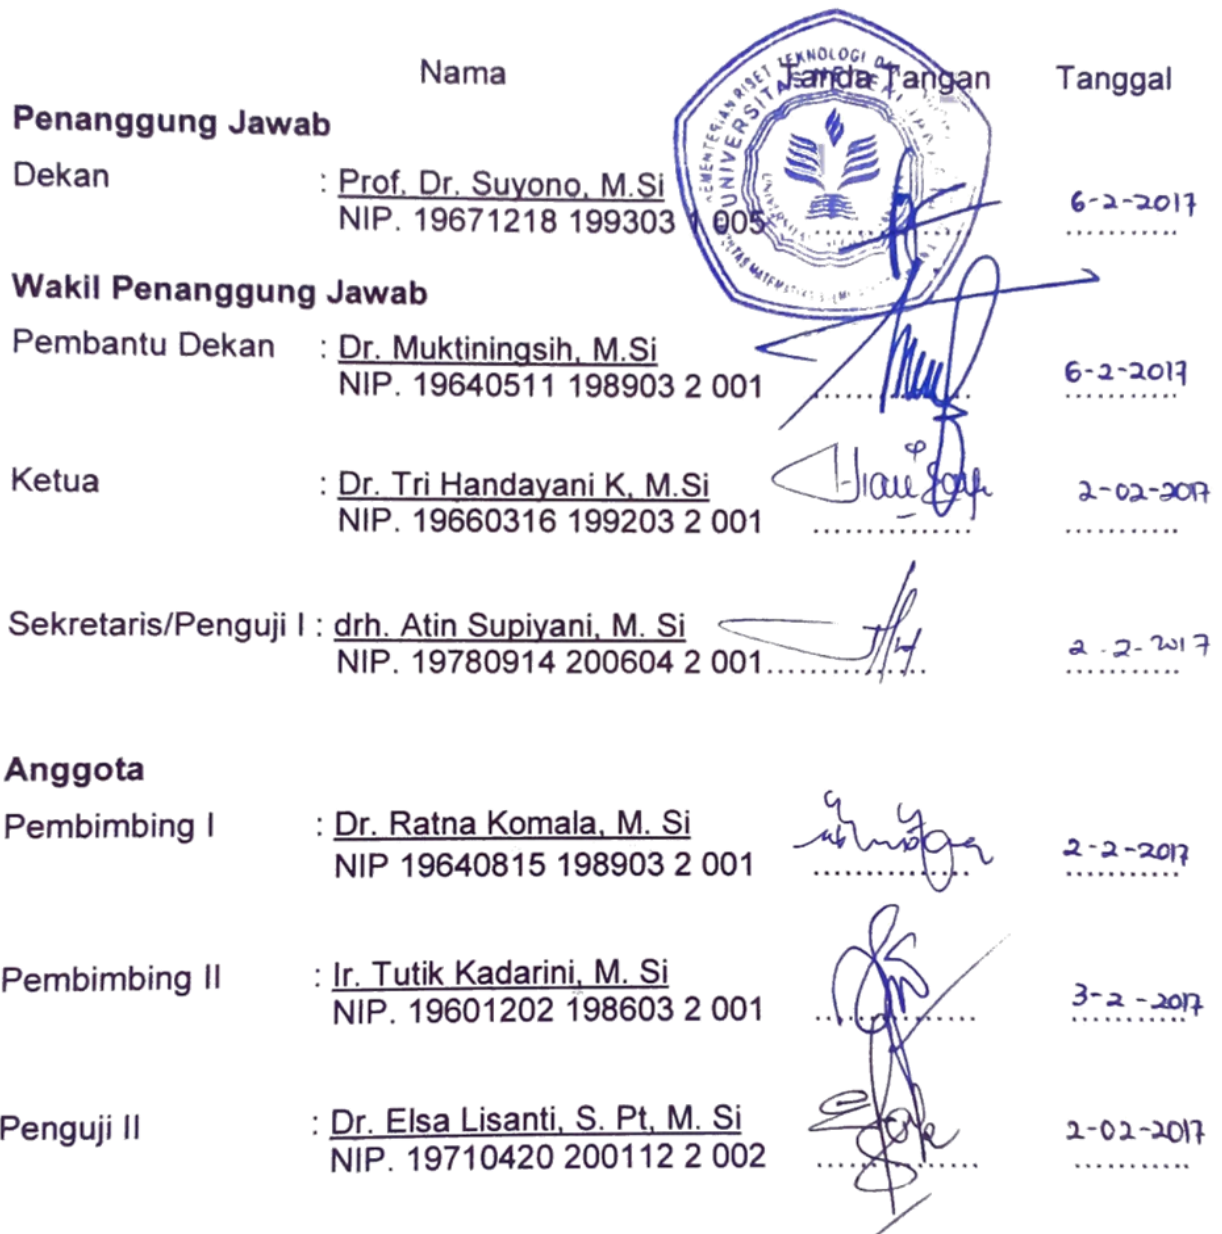 Nama Tanda Tangan Tanggal
Penanggung Jawab
Dekan : Prof. Dr. Suyono, M.Si
NIP. 19671218 199303 1 005 ............... 6-2-2017
Wakil Penanggung Jawab
Pembantu Dekan : Dr. Muktiningsih, M.Si
NIP. 19640511 198903 2 001 ............... 6-2-2017
Ketua : Dr. Tri Handayani K, M.Si
NIP. 19660316 199203 2 001 ............... 2-02-2017
Sekretaris/Penguji I : drh. Atin Supiyani, M. Si
NIP. 19780914 200604 2 001............... 2-2-2017
Anggota
Pembimbing I : Dr. Ratna Komala, M. Si
NIP 19640815 198903 2 001 ............... 2-2-2017
Pembimbing II : Ir. Tutik Kadarini, M. Si
NIP. 19601202 198603 2 001 ............... 3-2-2017
Penguji II : Dr. Elsa Lisanti, S. Pt, M. Si
NIP. 19710420 200112 2 002 ............... 2-02-2017